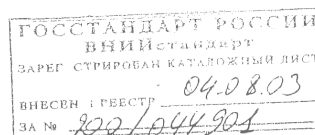 ГОССТАНДАРТ РОССИИ
ВНИИстандарт
ЗАРЕГ СТРИРОВАН КАТАЛОЖНЫЙ ЛИСТ
04.08.03
ВНЕСЕН РЕЕСТР
ЗА № 200/044901